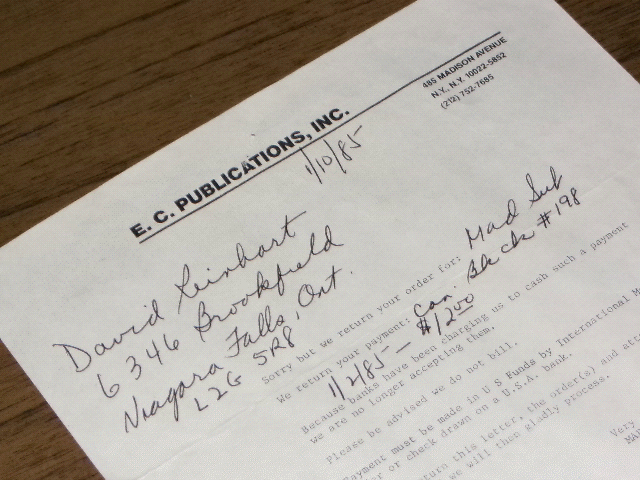 E. C. PUBLICATIONS, INC.
485 MADISON AVENUE
N.Y., N.Y. 10022-5852
(212) 752-7685
1/10/85
David Leinhart
6346 Brookfield
Niagara Falls, Ont.
L2G 5R8
Sorry but we return your order for: Mad Sub
We return your payment: Can. Bk Ck #198
1/2/85 — $12.00
Because banks have been charging us to cash such a payment
we are no longer accepting them.
Please be advised we do not bill.
Payment must be made in U S Funds by International M
or check drawn on a U.S.A. bank.
this letter, the order(s) and
we will then gladly process.
Very
MAD